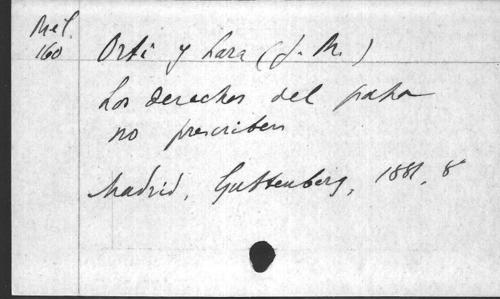 Mel.
160
Orti y Lara (J. M.)
Los derechos del papa
no prescriben
Madrid, Guttenberg, 1881, 8